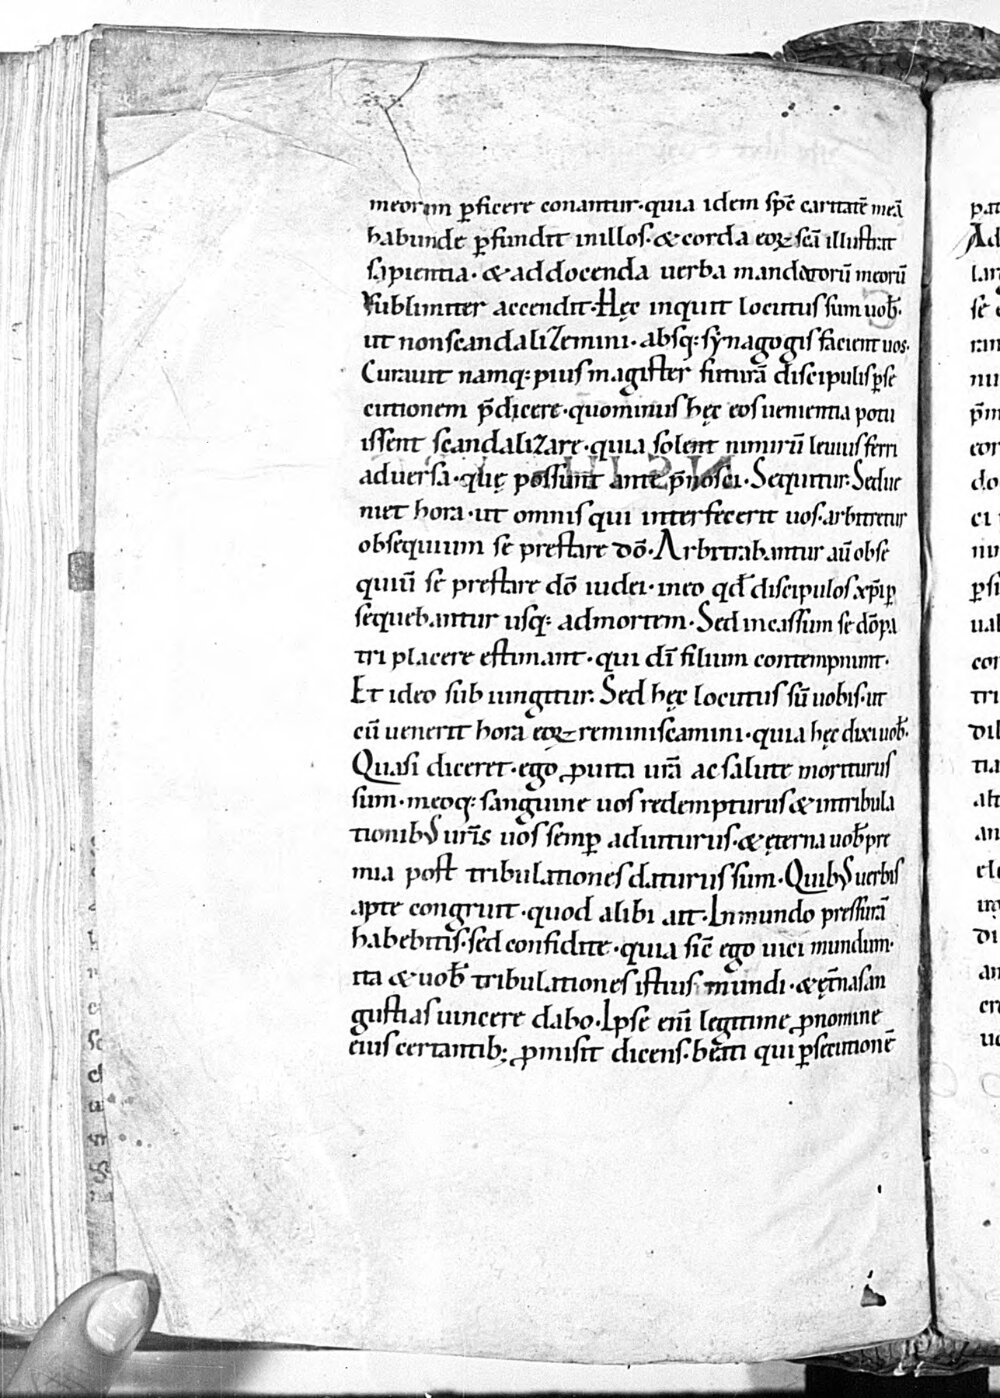 meorum ꝑficere conantur·quia idem spē caritatē meā
habunde ꝑfundit inillos·&corda eoꝝ seā illustrat
sapientia·&addocenda uerba mandatorū meorū
sublimiter accendit·Hęc inquit locutus sum uob̄·
ut nonscandalizemini·absq; synagogis facient uos·
Curauit namq; pius magister futurā discipulis ꝑse
cutionem p̄dicere·quominus hęc eos uenientia potu
issent scandalizare·quia solent nimirū leuius ferri
aduersa·quę possunt ante p̄nosci·Sequitur·Sed ue
niet hora·ut omnis qui interfecerit uos·arbitretur
obsequium se prestare dō·Arbitrabantur aū obse
quiū se prestare dō iudei·ineo qd̄ discipulos xp̄i ꝑ
sequebantur usq; admortem·Sed incassum se dō pa
tri placere estimant·qui dī filium contempnunt·
Et ideo sub iungitur·Sed hęc locutus sū uobis·ut
cū uenerit hora eoꝝ reminiscamini·quia hęc dixi uob̄·
Quasi diceret·ego ꝓuita urā ac salute moriturus
sum·meoq; sanguine uos redempturus & intribula
tionibꝰ urīs uos semꝑ adiuturus·& ęterna uob̄ pre
mia post tribulationes daturus sum·Quibꝰ uerbis
apte congruit·quod alibi ait·Inmundo pressurā
habebitis·sed confidite·quia sic̄ ego uici mundum·
ita & uob̄ tribulationes istius mundi·& ęt̄nas an
gustias uincere dabo·Ipse enī legitime ꝓnomine
eius certantib; ꝓmisit dicens·beati qui ꝑsecutionē